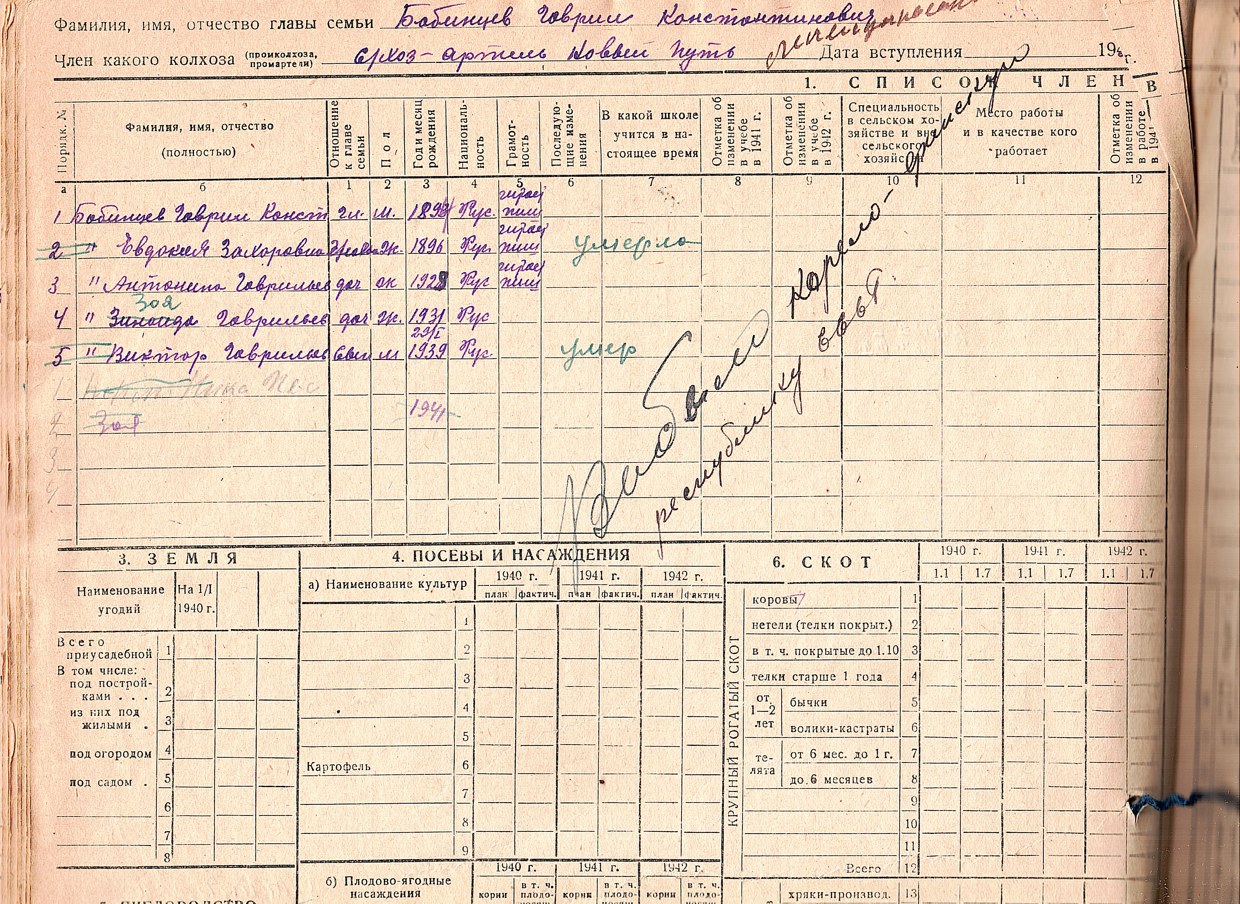 Фамилия, имя, отчество главы семьи Бабинцев Гаврил Константинович
Член какого колхоза (промколхоза, промартели) с/хоз-артель Новый Путь Дата вступления 19 г.
1. СПИСОК ЧЛЕНОВ
Порядк. №
Фамилия, имя, отчество (полностью)
Отношение к главе семьи
Пол
Год и месяц рождения
Националь-ность
Грамот-ность
Последую-щие изме-нения
В какой школе учится в на-стоящее время
Отметка об изменении в учебе в 1941 г.
Отметка об изменении в учебе в 1942 г.
Специальность в сельском хо-зяйстве и вне сельского хозяйства
Место работы и в качестве кого работает
Отметка об изменении в работе в 1941
а б 1 2 3 4 5 6 7 8 9 10 11 12
1 Бабинцев Гаврил Конст гл. м. 1893 Рус. читает пиш
2 " Евдокия Захаровна жена ж. 1896 Рус читает пиш умерла
3 " Антонина Гаврильев доч ж 1928 Рус читает пиш
Зоя
4 " Зинаида Гаврильев доч ж. 1931 Рус
29/I
5 " Виктор Гаврильев сын м 1939 Рус. умер
1
2 Зоя 1941
3
4
Выбыли Карело-Финскую
республику ССР
3. ЗЕМЛЯ
Наименование угодий
На 1/I 1940 г.
Всего приусадебной 1
В том числе:
под построй-ками . . . 2
из них под жилыми . 3
под огородом 4
под садом . 5
6
7
8
4. ПОСЕВЫ И НАСАЖДЕНИЯ
а) Наименование культур
1940 г. 1941 г. 1942 г.
план фактич. план фактич. план фактич.
1
2
3
4
5
Картофель 6
7
8
9
б) Плодово-ягодные насаждения
1940 г. 1941 г. 1942 г.
корни в т. ч. плодо- корни в т. ч. плодо- корни в т. ч. плодо-
6. СКОТ
1940 г. 1941 г. 1942 г.
1.1 1.7 1.1 1.7 1.1 1.7
КРУПНЫЙ РОГАТЫЙ СКОТ
коровы 1
нетели (телки покрыт.) 2
в т. ч. покрытые до 1.10 3
телки старше 1 года 4
от 1—2 лет
бычки 5
волики-кастраты 6
те-лята
от 6 мес. до 1 г. 7
до 6 месяцев 8
9
10
11
Всего 12
хряки-производ. 13